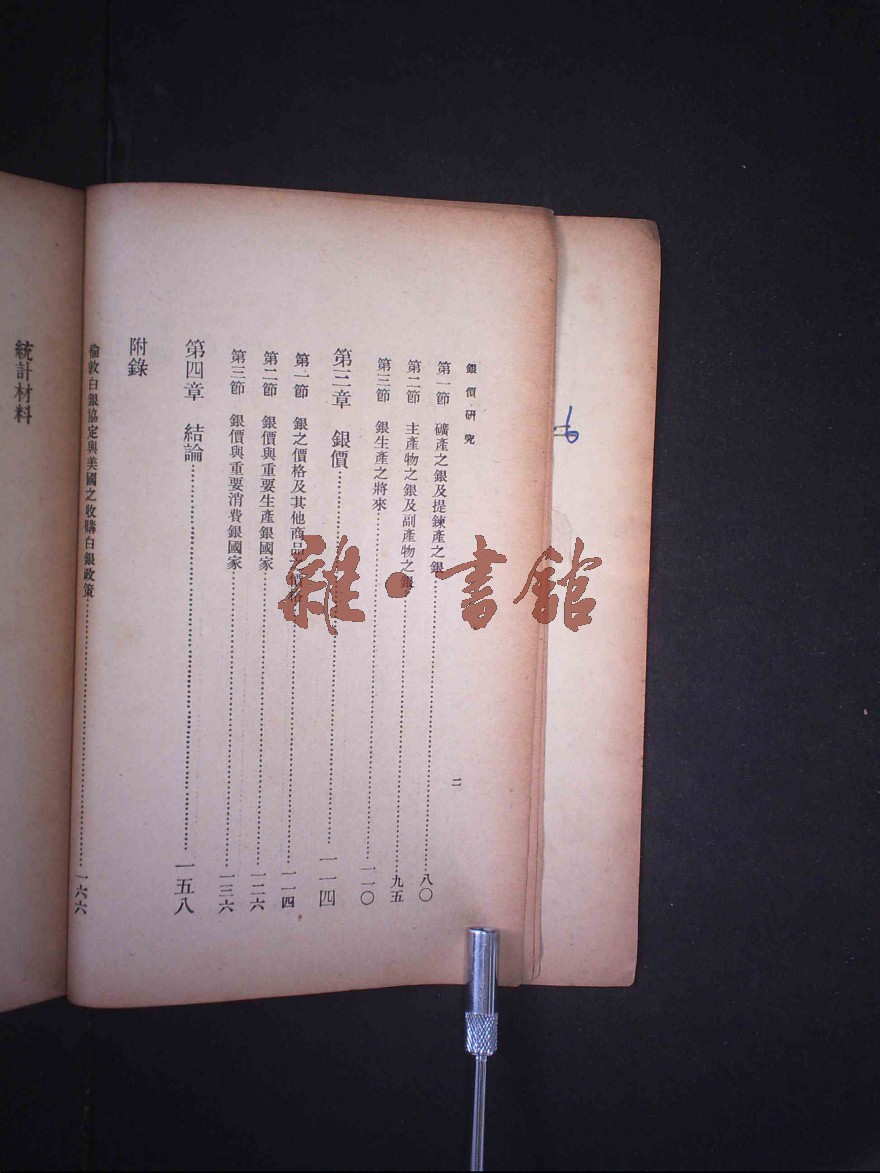 銀價研究
二
第一節 礦產之銀及提鍊產之銀……八〇
第二節 主產物之銀及副產物之銀……九五
第三節 銀生產之將來……一一〇
第三章 銀價……一一四
第一節 銀之價格及其他商品之價格……一一四
第二節 銀價與重要生產銀國家……一二六
第三節 銀價與重要消費銀國家……一三六
第四章 結論……一五八
附錄
倫敦白銀協定與美國之收購白銀政策……一六六
統計材料
雜·書館